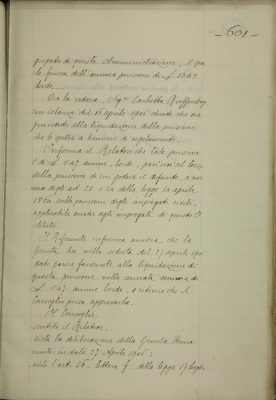 601
piegato di questa Amministrazione, il qua
le fruiva dell'annua pensione di £ 1642
lorde
Ora la vedova, Sig.ra Carlotta
con istanza del 18 aprile 1906 chiede che sia
provveduto alla liquidazione della pensione
che le spetta a termini di regolamento.
Informa il Relatore che tale pensione
è di £ 547 annue, lorde, pari cioè al terzo
della pensione di cui godeva il defunto, a nor
ma degli art. 22. e 24 della legge 14 aprile
1864 sulle pensioni degli impiegati civili,
applicabile anche agli impiegati di questo I
stituto.
Il Referente informa ancora, che la
Giunta ha nella seduta del 27 aprile 1906
dato parere favorevole alla liquidazione di
questa pensione nella cennata somma di
£ 547 annue lorde, e ritiene che il
Consiglio possa approvarla.
Il Consiglio,
sentito il Relatore,
vista la deliberazione della Giunta Perma
nente in data 27 Aprile 1906;
visto l'art. 26. lettera f. della legge 17 luglio